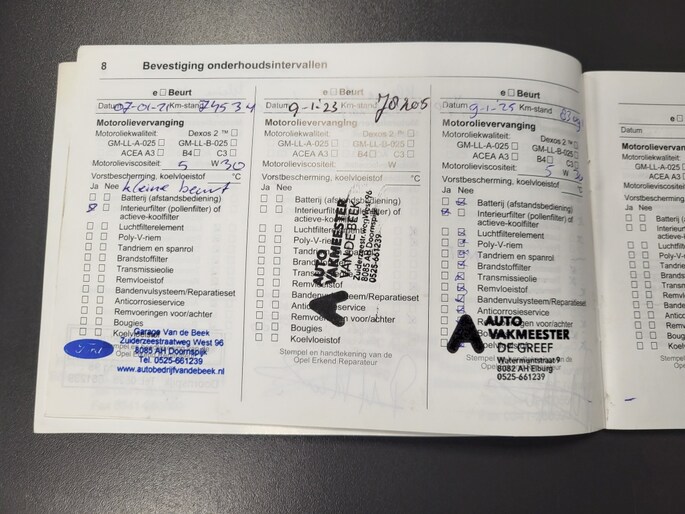 8 Bevestiging onderhoudsintervallen
e □ Beurt
Datum 07-01-21 Km-stand 74534
Motorolievervanging
Motoroliekwaliteit: Dexos 2 ™ □
GM-LL-A-025 □ GM-LL-B-025 □
ACEA A3 □ B4 □ C3 □
Motorolieviscositeit: 5 W 30
Vorstbescherming, koelvloeistof °C
Ja Nee kleine beurt
Batterij (afstandsbediening)
Interieurfilter (pollenfilter) of
actieve-koolfilter
Luchtfilterelement
Poly-V-riem
Tandriem en spanrol
Brandstoffilter
Transmissieolie
Remvloeistof
Bandenvulsysteem/Reparatieset
Anticorrosieservice
Remvoeringen voor/achter
Bougies
Koelvloeistof
Garage Van de Beek
Zuiderzeestraatweg West 96
8085 AH Doornspijk
Tel. 0525-661239
www.autobedrijfvandebeek.nl
e □ Beurt
Datum 9-1-23 Km-stand 78205
Motorolievervanging
Motoroliekwaliteit: Dexos 2 ™ □
GM-LL-A-025 □ GM-LL-B-025 □
ACEA A3 □ B4 □ C3 □
Motorolieviscositeit: W
Vorstbescherming, koelvloeistof °C
Ja Nee
Batterij (afstandsbediening)
Interieurfilter (pollenfilter) of
actieve-koolfilter
Luchtfilterelement
Poly-V-riem
Remvloeistof
Bandenvulsysteem/Reparatieset
Remvoeringen voor/achter
Bougies
Koelvloeistof
Stempel en handtekening van de
Opel Erkend Reparateur
AUTO
VAKMEESTER
VAN DE BEEK
8085 AH Doornspijk
0525-661239
e □ Beurt
Datum 9-1-25 Km-stand
Motorolievervanging
Motoroliekwaliteit: Dexos 2 ™ □
GM-LL-A-025 □ GM-LL-B-025 □
ACEA A3 □ B4 □ C3 □
Motorolieviscositeit: 5 W 30
Vorstbescherming, koelvloeistof °C
Ja Nee
Batterij (afstandsbediening)
Interieurfilter (pollenfilter) of
actieve-koolfilter
Luchtfilterelement
Poly-V-riem
Tandriem en spanrol
Brandstoffilter
Transmissieolie
Remvloeistof
Bandenvulsysteem/Reparatieset
Anticorrosieservice
AUTO
VAKMEESTER
DE GREEF
Watermuntstraat 9
8082 AH Elburg
0525-661239
Datum